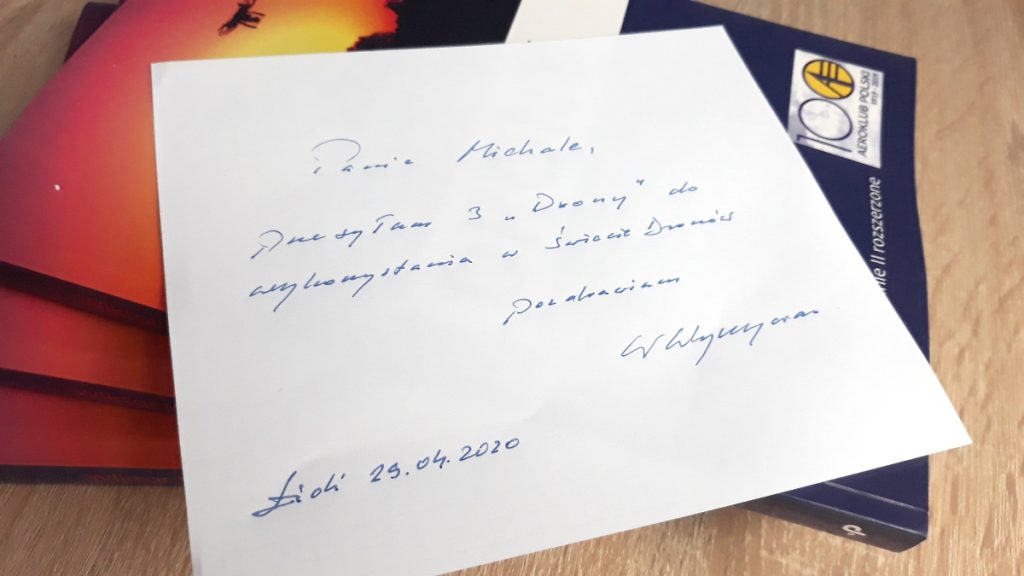 Panie Michale,
przesyłam 3 „Drony" do
wykorzystania w Świecie Dronów
Pozdrawiam
Łódź 29.04.2020
100
AEROKLUB POLSKI
1919 - 2019
nie II rozszerzone